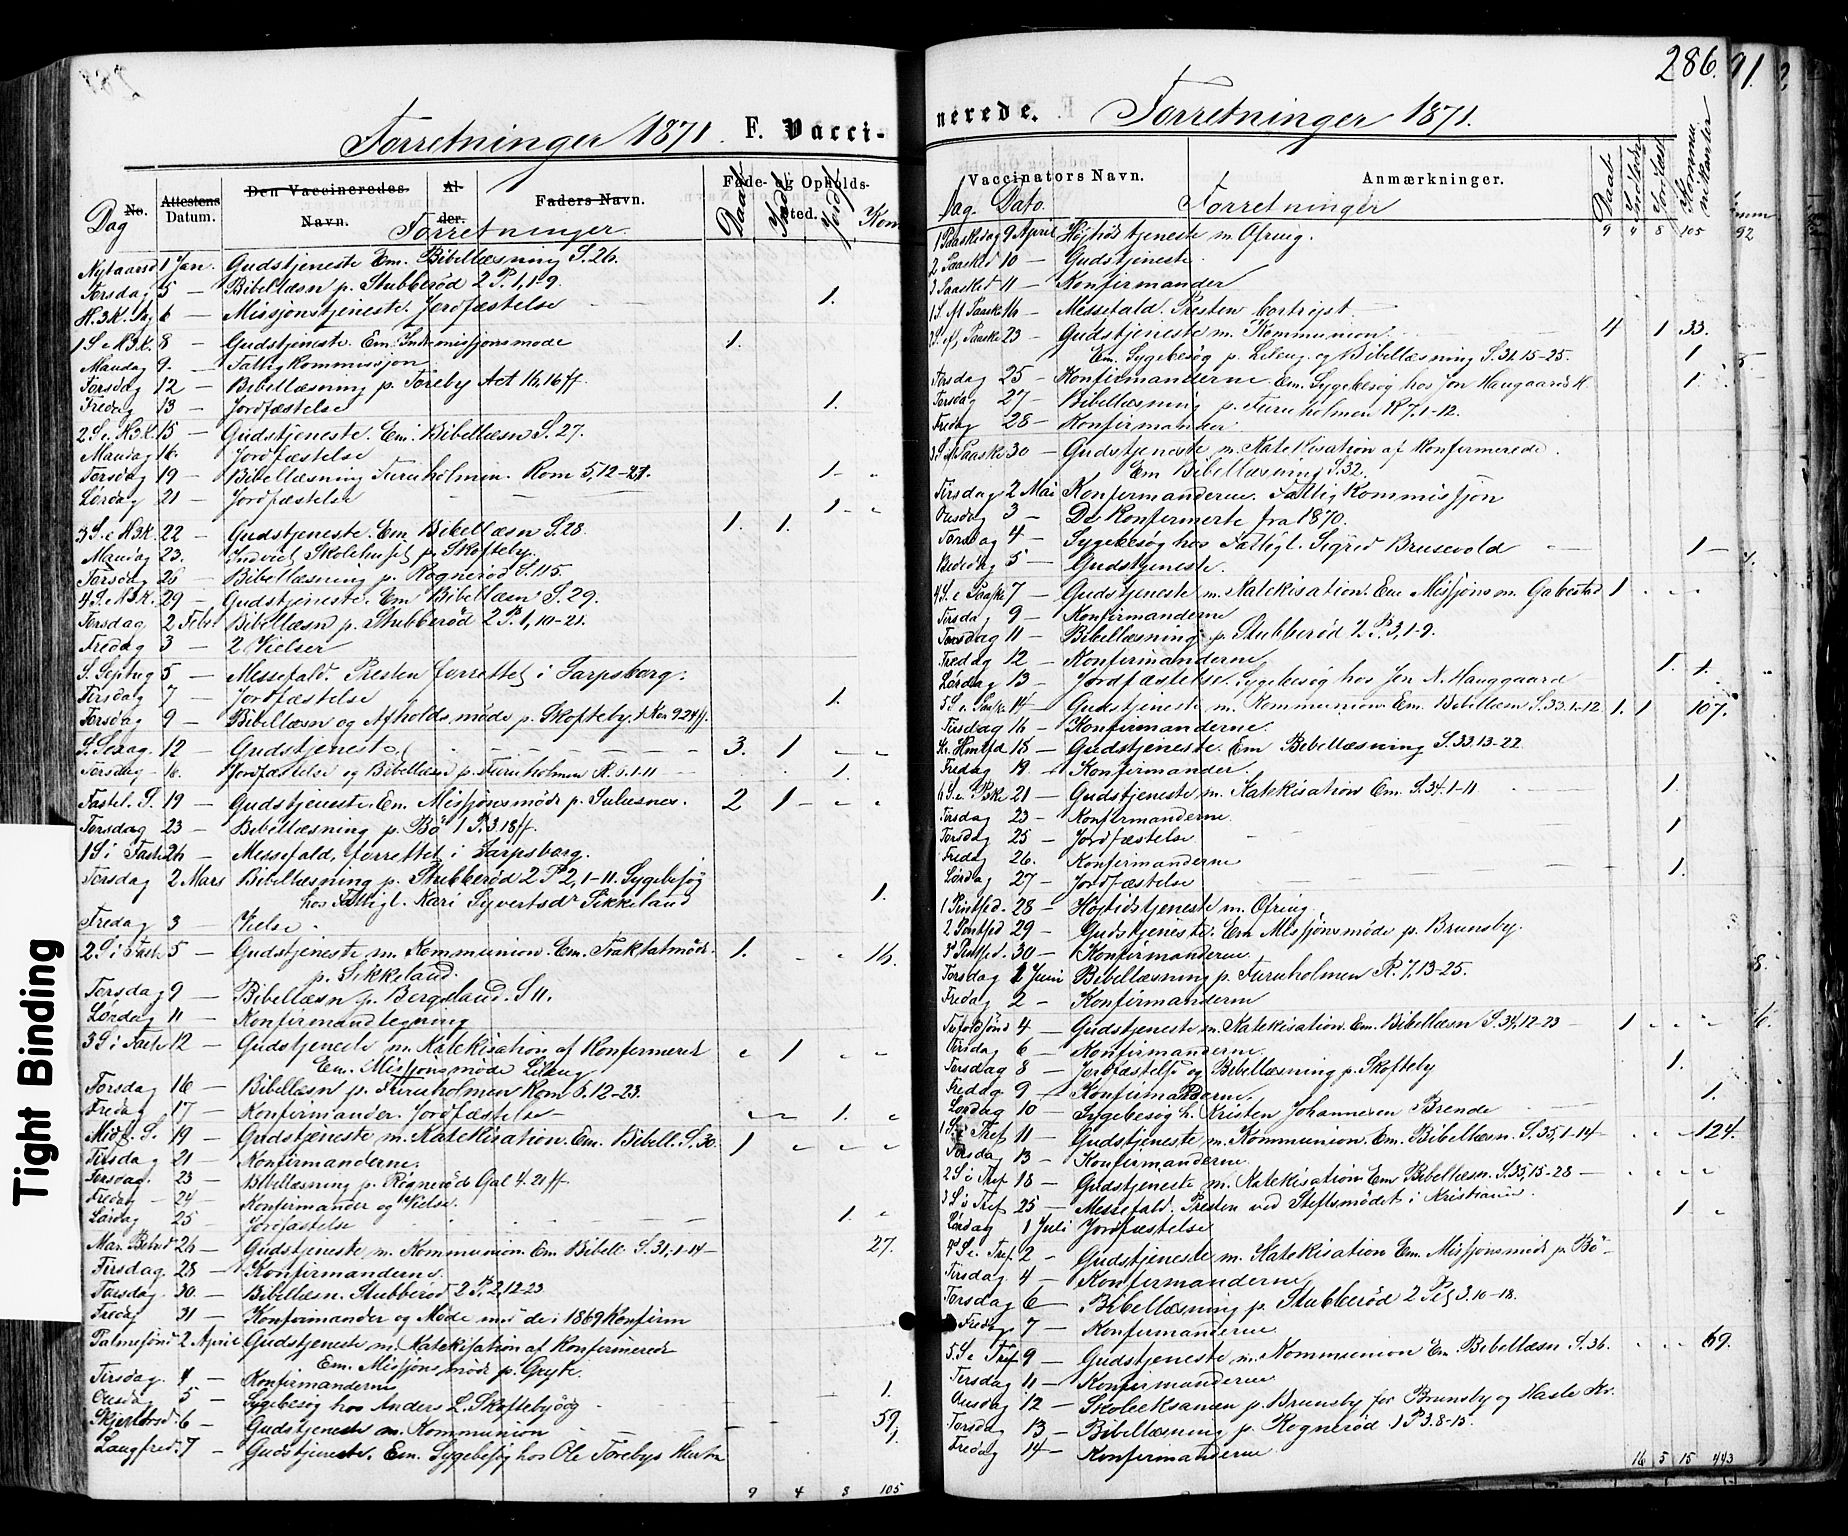 Forretninger 1871. F. Vacci-
No. Attestens Datum. Den Vaccineredes Navn. Al-der. Faders Navn. Føde- og Opholds-sted.
Dag Forretninger. Daab Jordf Kom
Nytaarsd 1 Jan. Gudstjeneste Em. Bibellæsning S. 26.
Torsdag 5 — Bibellæsn p. Stubberød 2 P. 1, 1-9.
H. 3 K. Dag 6 — Missjonstjeneste. Jordfæstelse — — 1.
1 S e H3K. 8 — Gudstjeneste. Em. Indremissjonsmøde 1.
Mandag 9. — Fattigkommissjon
Torsdag 12 — Bibellæsning p. Toreby Act 16, 16 ff.
Fredag 13 — Jordfæstelse 1.
2 S e. H3K. 15 — Gudstjeneste. Em. Bibellæsn S. 27.
Mandag 16. — Jordfæstelse
Torsdag 19 — Bibellæsning Furuholmen. Rom 5, 12-21. 1-
Lørdag 21 — Jordfæstelse — — — 1-
3 S. e H3K. 22 — Gudstjeneste. Em Bibellæsn S. 28. 1. 1.
Mandag 23. Indviet Skolehuset p. Skofteby.
Torsdag 26 — Bibellæsning p. Rognerød S. 115.
4 S. e H3K. 29 — Gudstjeneste. Em Bibellæsn S. 29.
Torsdag 2 Febr Bibellæsn p. Stubberød 2 P. 1, 10-21.
Fredag 3 — 2 Vielser
S. Septug 5 — Messefald. Presten forrettet i Sarpsborg.
Tirsdag 7 — Jordfæstelse 1.
Torsdag 9 — Bibellæsn og Afholdsmøde p. Skofteby. 1 Kor 9. 24 ff.
S. Sexag. 12 — Gudstjeneste — — — — 3. 1 — -
Torsdag 16. — Jordfæstelse og Bibellæsn p. Furuholmen R. 6. 1-11 — 1.
Fastel. S. 19 — Gudstjeneste. Em. Missjonsmøde p. 2 1 - -
Torsdag 23 — Bibellæsning p. Bö 1 P. 3. 18 ff.
1 S i Faste 26 — Messefald, forrettet i Sarpsborg.
Torsdag 2 Mars Bibellæsning p. Stubberød 2 P 2, 1-11. Sygebesøg
hos Fattigl. Kari Syvertsdr Sikkeland 1.
Fredag 3 — Vielse.
2 S i Faste 5 — Gudstjeneste m. Kommunion. Em. Traktatmøde 1. 16.
p. Sikkeland.
Torsdag 9 — Bibellæsn p. Bergeland. S 11.
Lørdag 11 — Konfirmandtegning
3 S i Faste 12 — Gudstjeneste m. Katekisation af Konfirmerede - 1 - -
Em. Missjonsmøde Lileng
Torsdag 16 — Bibellæsn p. Furuholmen Rom 6. 12-23.
Fredag 17 — Konfirmander. Jordfæstelse — 1. -
Midf. S. 19 — Gudstjeneste m. Katekisation. Em. Bibell. S. 30. 1 - - -
Tirsdag 21 — Konfirmanderne.
Torsdag. 23 — Bibellæsning p. Rognerød Gal 4. 21 ff
Fredag — 24 — Konfirmander og Vielse.
Lørdag 25 — Jordfæstelse 1. -
Mar. Bebud 26 — Gudstjeneste m. Kommunion. Em Bibell. S. 31, 1-14 — 27.
Tirsdag. 28 — Konfirmanderne.
Torsdag 30. — Bibellæsn. Stubberød 2 P. 2, 12-23
Fredag 31 — Konfirmander og Møde med de i 1869 Konfirm
Palmesønd 2 April Gudstjeneste m. Katekisation af Konfirmerede
Em. Missjonsmøde p. Gryte.
Tirsdag. 4 — Konfirmanderne
Onsdag 5 — Sygebesøg hos Anders L. Skoftebyødeg — 1.
Skjertorsd 6 — Gudstjeneste m. Kommunion 59.
Langfred. 7 — Gudstjeneste. Em. Sygebesøg hos Ole Torebys Hustru 1.
9 4 8 105
Tight Binding
286.
nerede. Forretninger 1871.
Vaccinators Navn. Anmærkninger.
Dag. Dato. Forretninger Daab Jordfæst Kommunikanter
9 4 8 105
1 Paaskedag 9 April Højtidstjeneste m. Ofring.
2 Paasked 10 — Gudstjeneste.
3 Paasked 11 — Konfirmander
1 S. ft Paaske 16 — Messefald. Presten bortrejst —
2 S. ft Paaske 23 — Gudstjeneste m. Kommunion 4 1 33.
Em. Sygebesøg p. Lileng. og Bibellæsning S. 31. 15-25. 1
Tirsdag 25 — Konfirmanderne. Em. Sygebesøg hos Jon Haugaards K. 1
Torsdag 27 — Bibellæsning p. Furuholmen R 7. 1-12.
Fredag 28 — Konfirmander
3 S. ft Paaske 30 — Gudstjeneste m. Katekisation af Konfirmerede.
Em Bibellæsning S. 32.
Tirsdag 2 Mai Konfirmanderne. Fattigkommissjon
Onsdag 3 — De Konfirmerte fra 1870.
Torsdag 4 — Sygebesøg hos Fattigl. Sigrid Brusevold — 1 -
Bededag 5 — Gudstjeneste.
4 S. e Paaske 7 — Gudstjeneste m. Katekisation. Em Missjons m. Gabestad 1
Tirsdag 9 — Konfirmanderne
Torsdag 11 — Bibellæsning p. Stubberød 2. P. 3, 1-9.
Fredag 12 — Konfirmanderne
Lørdag 13 — Jordfæstelse. Sygebesøg hos Jon N. Hauggaard 1. 1.
5 S e. Paaske 14 — Gudstjeneste m. Kommunion. Em. Bibellæsn S. 33. 1-12 1. 1 107.
Tirsdag 16 — Konfirmanderne.
Kr. Hmlfd 18 — Gudstjeneste. Em Bibellæsning S. 33. 13-22
Fredag 19 — Konfirmander.
6 S. e. Paske 21 — Gudstjeneste m. Katekisation Em. S. 34. 1-11 1.
Tirsdag 23 — Konfirmanderne.
Torsdag 25 — Jordfæstelse 1
Fredag 26. — Konfirmanderne
Lørdag 27 — Jordfæstelse 1.
1 Pintsed. 28 — Højtidstjeneste m. Ofring.
2 Pintsed. 29 — Gudstjeneste. Em Missjonsmøde p. Brunsby.
3 Pintsed. 30 — Konfirmanderne.
Torsdag 1 Juni Bibellæsning p. Furuholmen R. 7. 13-25.
Fredag 2 — Konfirmanderne
Trefoldsønd 4 — Gudstjeneste m. Katekisation. Em. Bibellæsn S. 34, 12-23 — 1
Tirsdag 6 — Konfirmanderne.
Torsdag 8 — Jordfæstelse og Bibellæsning p. Skofteby 1.
Fredag 9 — Konfirmanderne.
Lørdag 10 — Sygebesøg h. Kristen Johannesen Brende 1.
1 S. e Tref 11 — Gudstjeneste m. Kommunion. Em. Bibellæsn. S. 35, 1-14 — 124.
Tirsdag 13 — Konfirmanderne.
2 S e Tref 18 — Gudstjeneste m. Katekisation Em Bibellæsn. S. 35, 15-28 —
3 S e Tref 25 — Messefald. Presten ved Stiftsmødet i Kristiania
Lørdag 1 Juli Jordfæstelse 1
4 S e. Tref. 2 — Gudstjeneste m. Katekisation Em. Missjonsmøde p. Bö -
Tirsdag 4 — Konfirmanderne
Torsdag 6 — Bibellæsning p. Stubberød 2 Pet 3. 10-18.
Fredag 7 — Konfirmanderne
5. S e Tref 9 — Gudstjeneste m. Kommunion Em. Bibellæsn S. 36. 69.
Tirsdag 11 — Konfirmanderne
Onsdag 12 — Skoleeksamen p. Brunsby for Brunsby og Hasle Kr.
Torsdag 13 — Bibellæsning p. Rognerød 1 P 3. 8-15.
Fredag 14 — Konfirmanderne
16 5 15 443